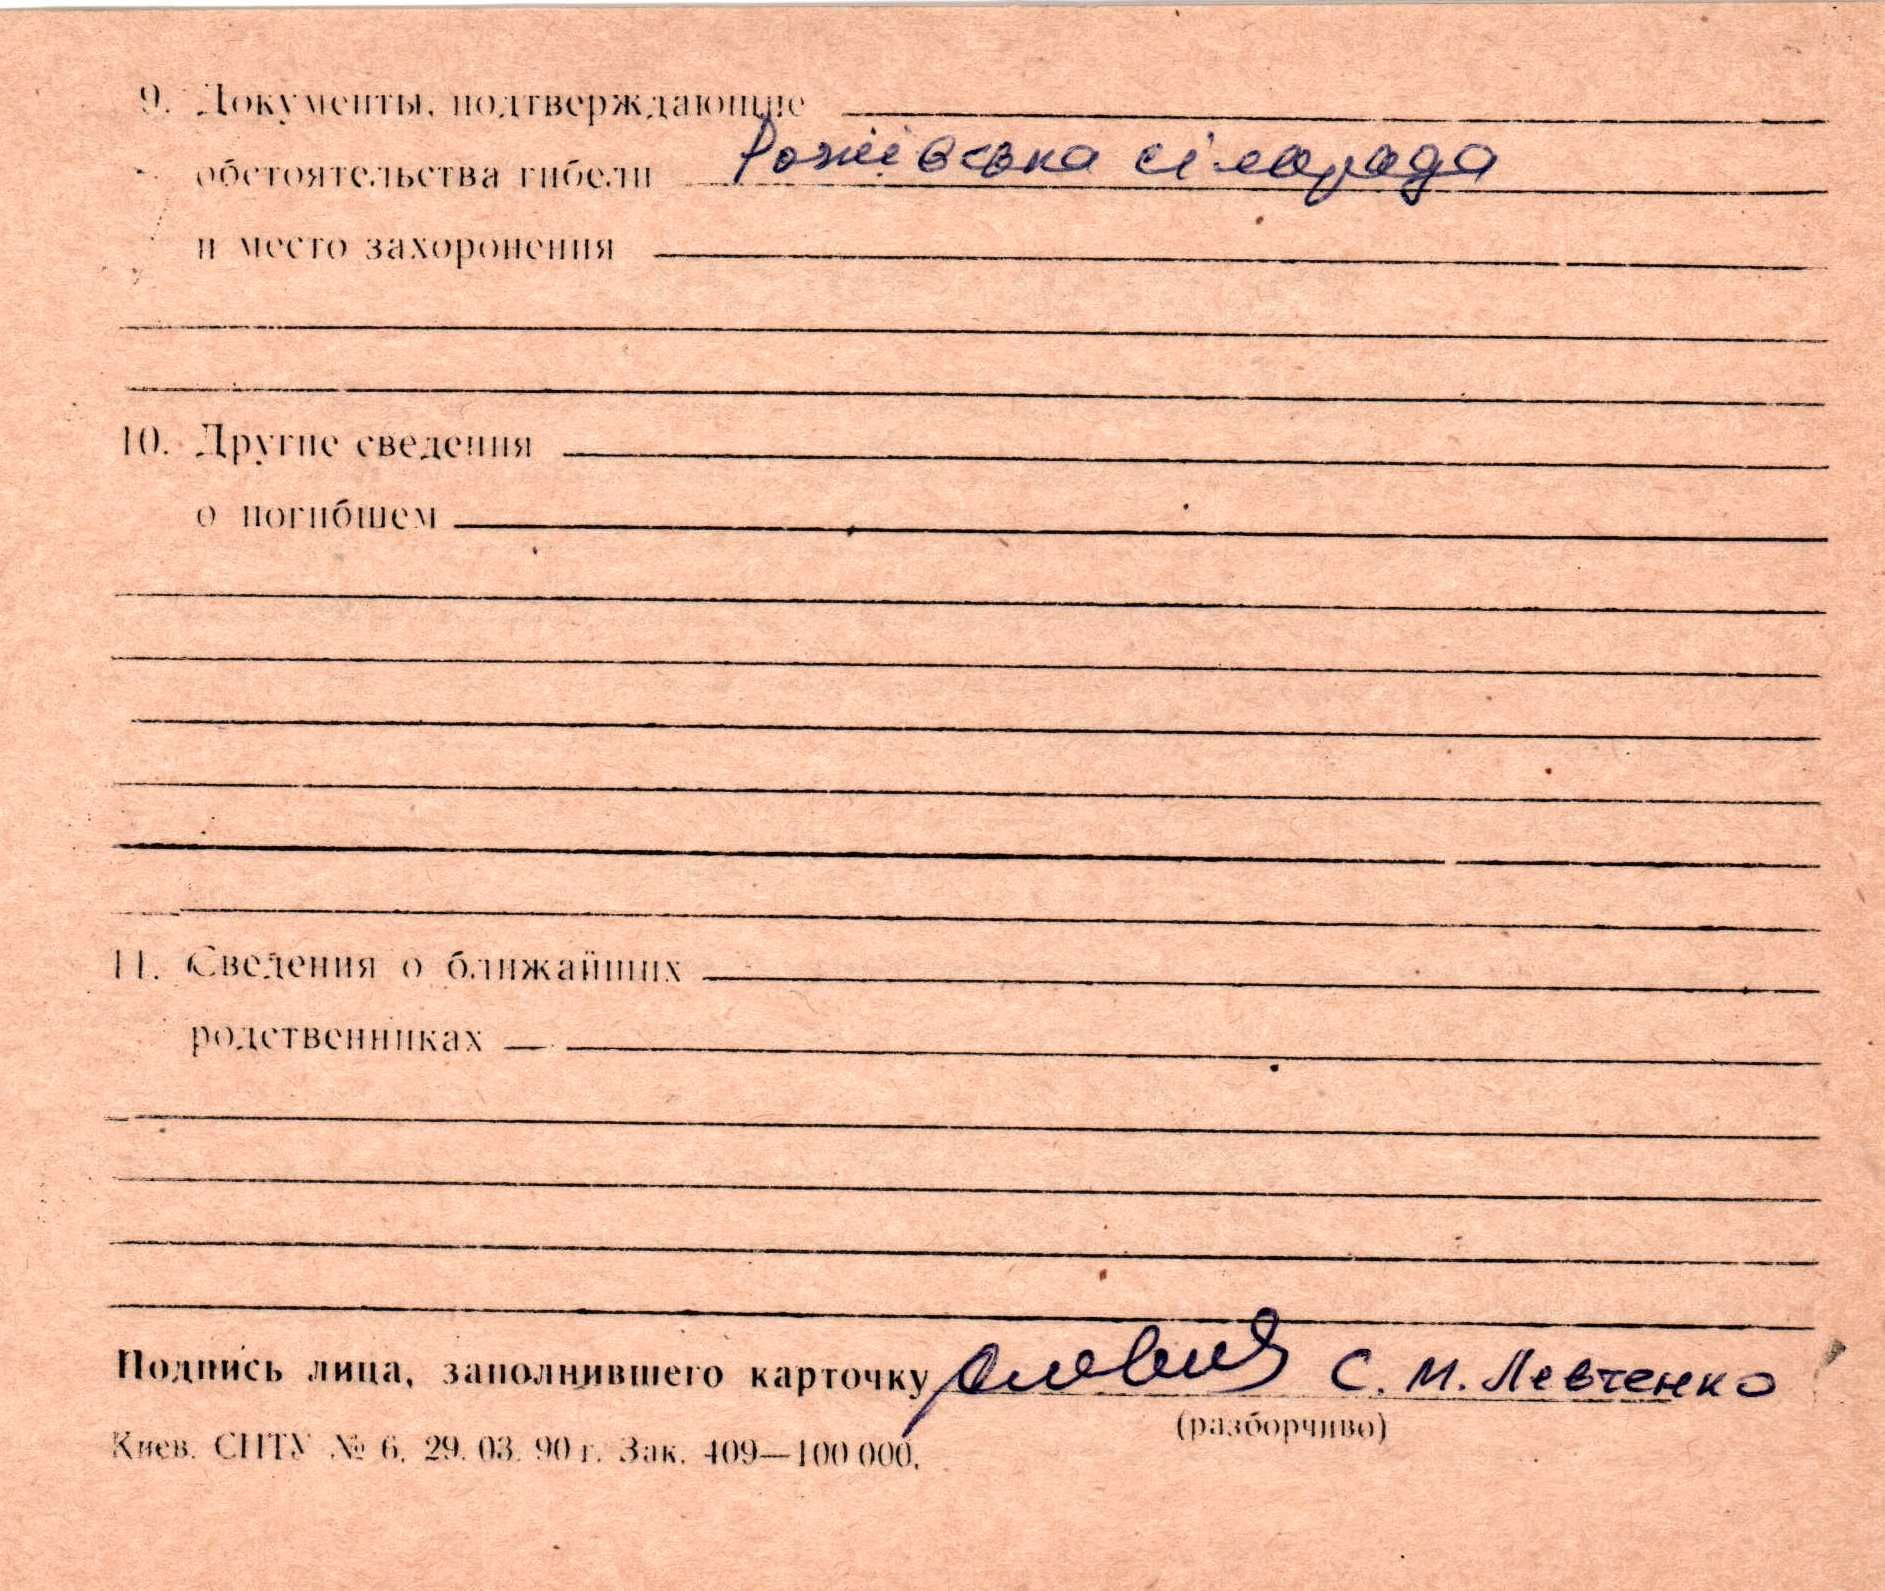 9. Документы, подтверждающие
обстоятельства гибели Рожівська сільрада
и место захоронения
10. Другие сведения
о погибшем
11. Сведения о ближайших
родственниках
Подпись лица, заполнившего карточку С. М. Левченко
(разборчиво)
Киев. СПТУ № 6. 29. 03. 90 г. Зак. 409—100 000.